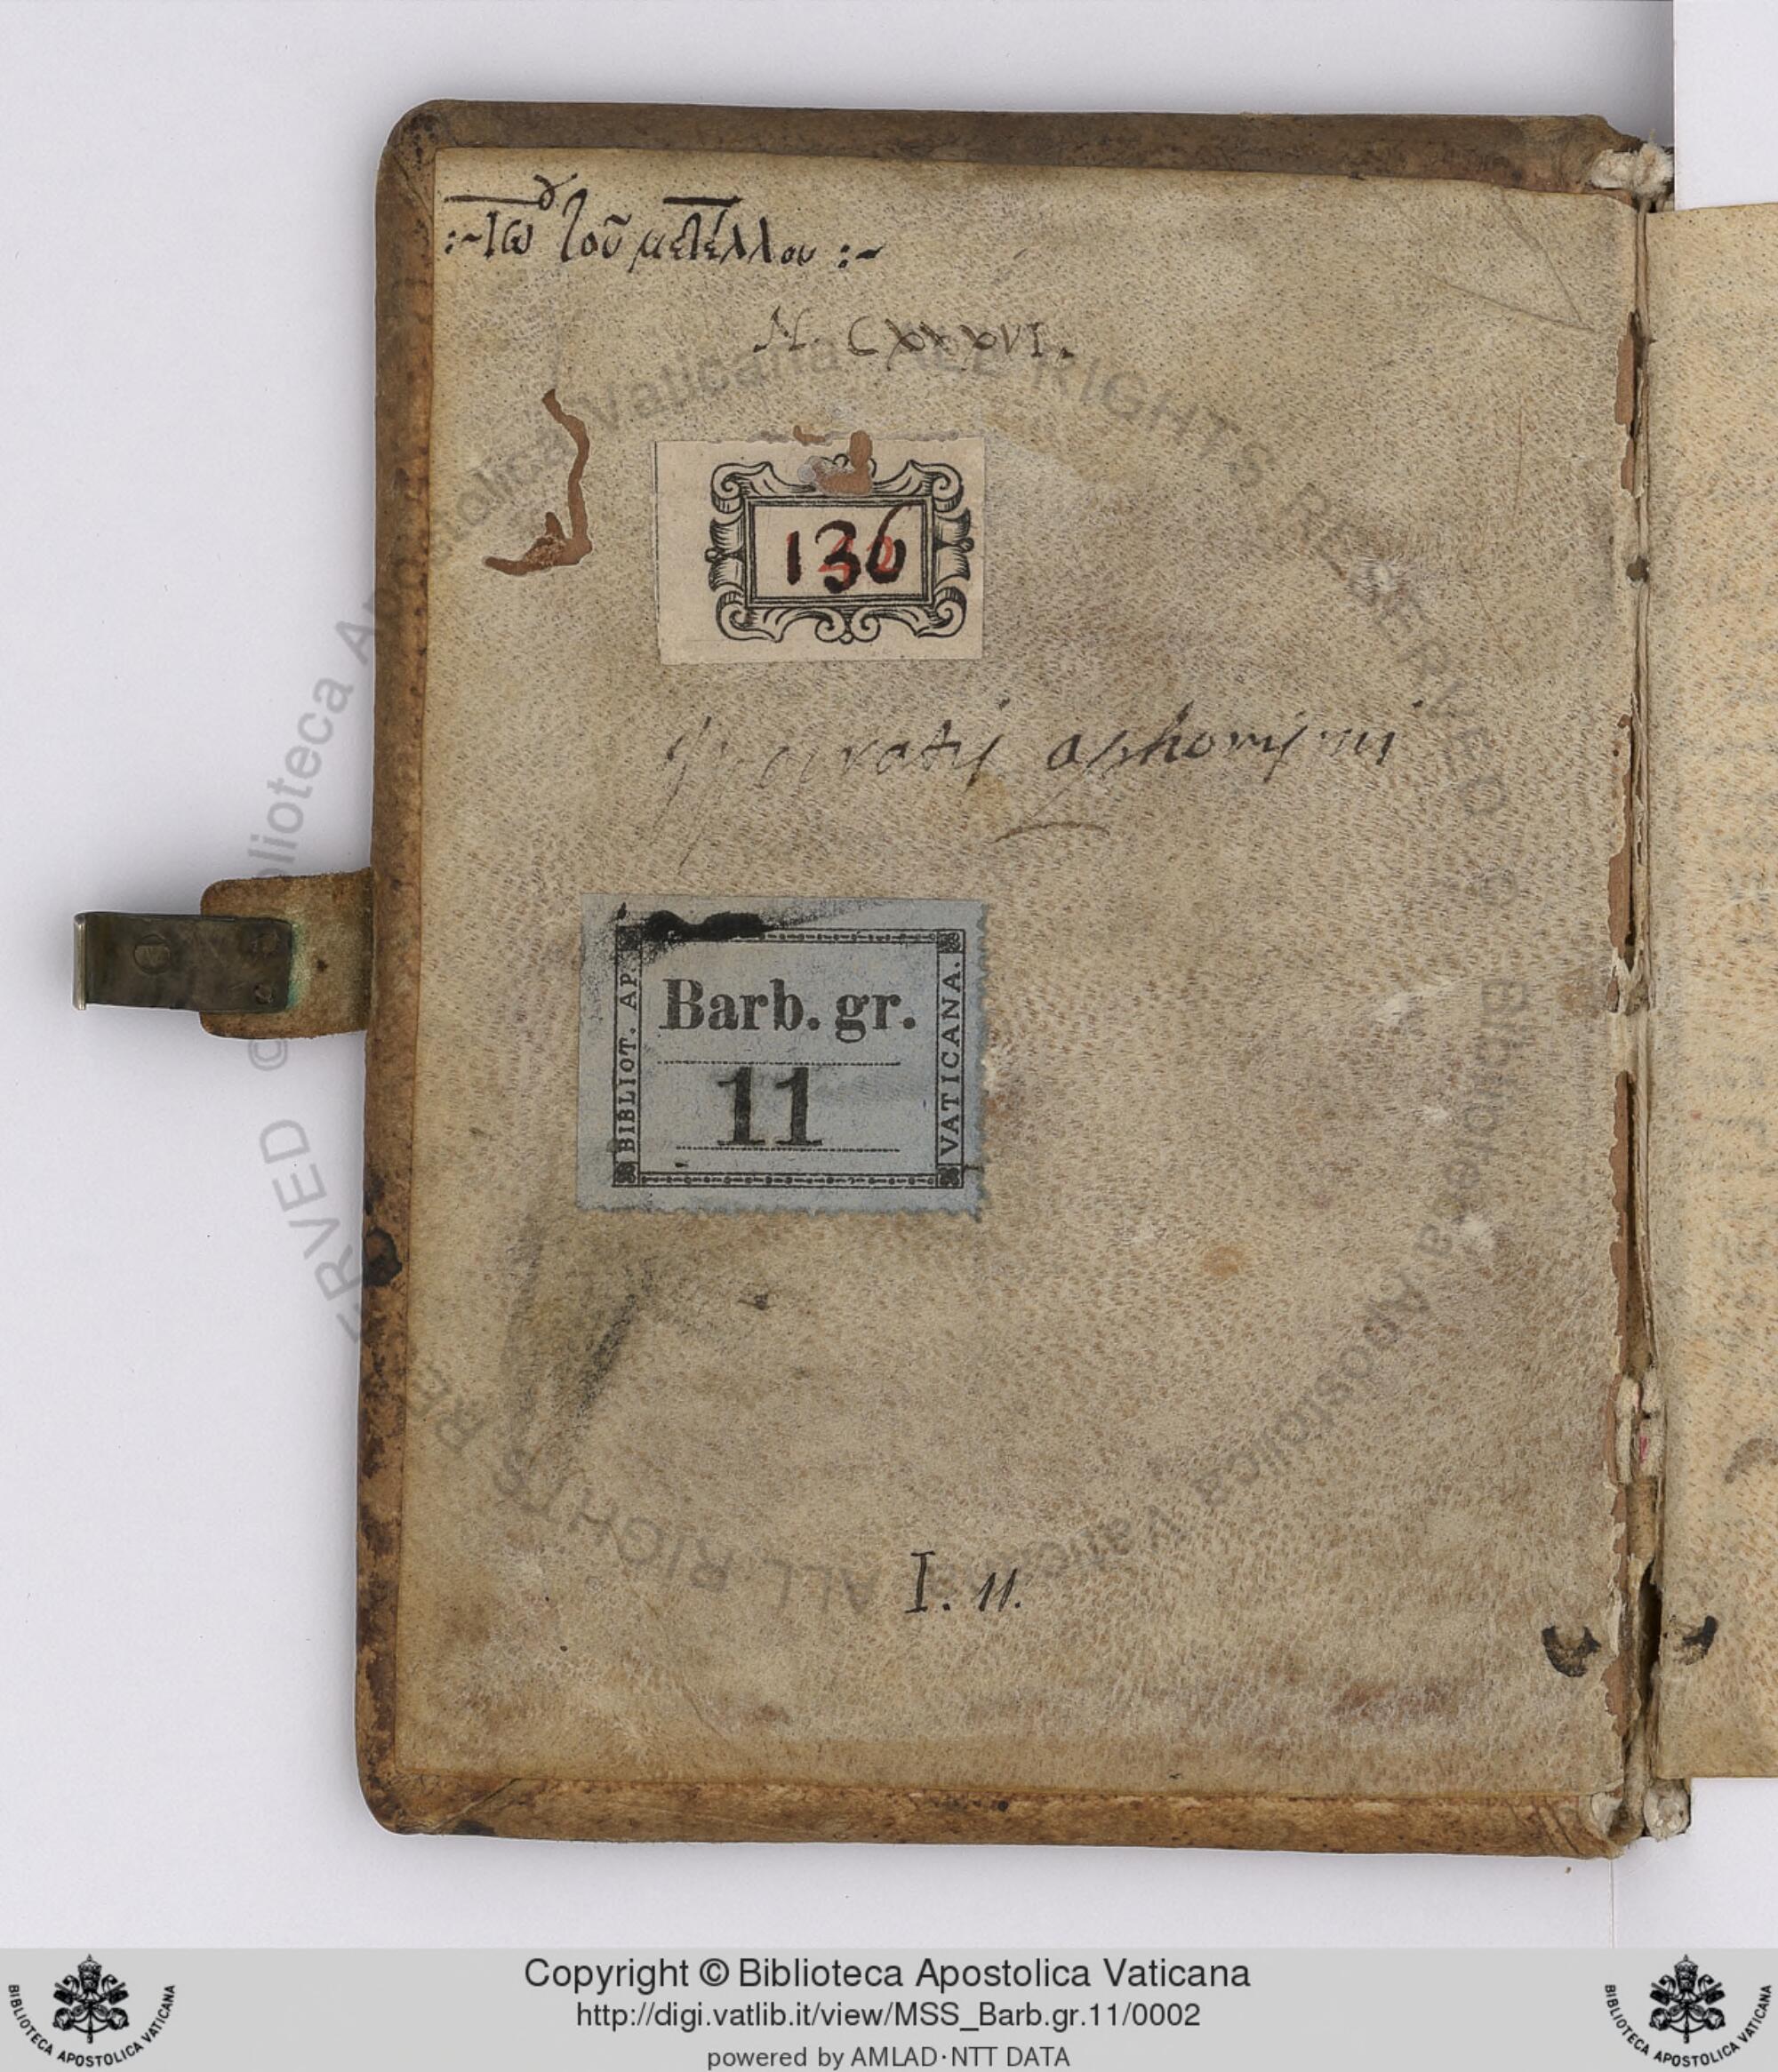 :~ Ἰωου τοῦ μετέλλου :~
N. CXXXVI.
136
ypocratis aphorismi
BIBLIOT. AP.
Barb. gr.
11
VATICANA.
I. 11.
© Biblioteca Apostolica Vaticana ALL RIGHTS RESERVED
© Biblioteca Apostolica Vaticana ALL RIGHTS RESERVED
Copyright © Biblioteca Apostolica Vaticana
http://digi.vatlib.it/view/MSS_Barb.gr.11/0002
powered by AMLAD·NTT DATA
BIBLIOTECA APOSTOLICA VATICANA
BIBLIOTECA APOSTOLICA VATICANA